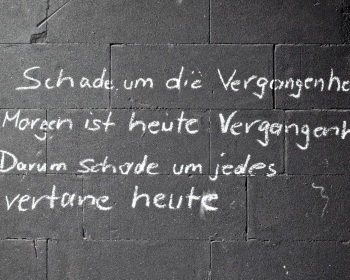 Schade um die Vergangenhe
Morgen ist heute Vergangenh
Darum schade um jedes
vertane heute